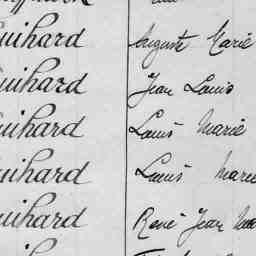 uihard Auguste Marie
uihard Jean Louis
uihard Louis Marie
uihard Louis Marie
uihard René Jean